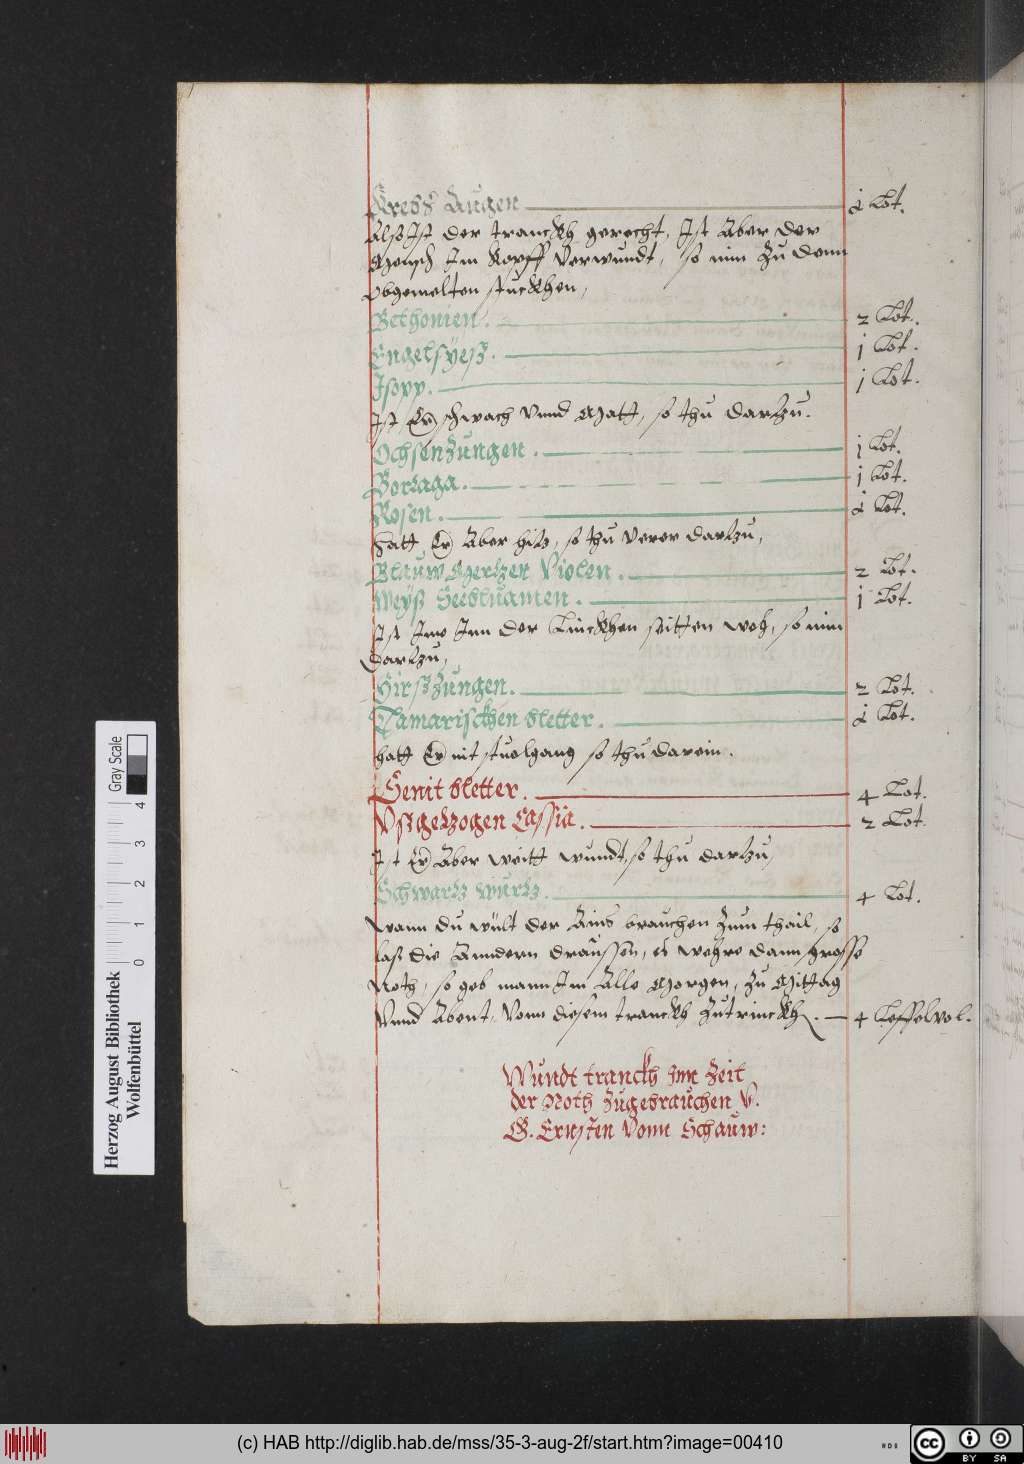 Krebs Augen — i Lot.
Also Ist der tranckh gerecht, Ist Aber der
Mensch Im Kopff Verwundt, so nim zu denn
obgemelten stuckhen,
Bethonien. — 2 Lot.
Engelsüesz. — j Lot.
Isopp. — j Lot.
Ist Er schwach Vnnd Matt, so thu dartzu.
Ochsenzungen. — j Lot.
Borraga. — j Lot.
Rosen. — i Lot.
Hatt Er Aber hitz, so thu Verer dartzu,
Blauw Mertzen Violen. — 2 Lot.
Weyß Seebluamen. — j Lot.
Ist Ime Inn der Linckhen seitten weh, so nim
dartzu,
Hirszzungen. — 2 Lot.
Tamarisckhen bletter. — i Lot.
hatt Er nit stuolgang so thu darein.
Senit bletter. — 4 Lot.
Vszgetzogen Cassia. — 2 Lot.
Ist Er Aber weitt wundt, so thu dartzu,
Schwartz wurtz. — 4 Lot.
Wann du wült der Ains brauchen zum thail, so
lasz die Anndern draussen, es wehre dann grosse
Noth, so geb mann Im Alle Morgen, zu Mittag
Vnnd Abent, Vonn diesem tranckh zutrinckhen. — 4 Leffelvol.
Wundt tranckh Inn Zeit
der Noth zugebrauchen V.
G. Ernsten Vonn Schauw:
Gray Scale
0 1 2 3 4
Herzog August Bibliothek
Wolfenbüttel
(c) HAB http://diglib.hab.de/mss/35-3-aug-2f/start.htm?image=00410
cc BY SA